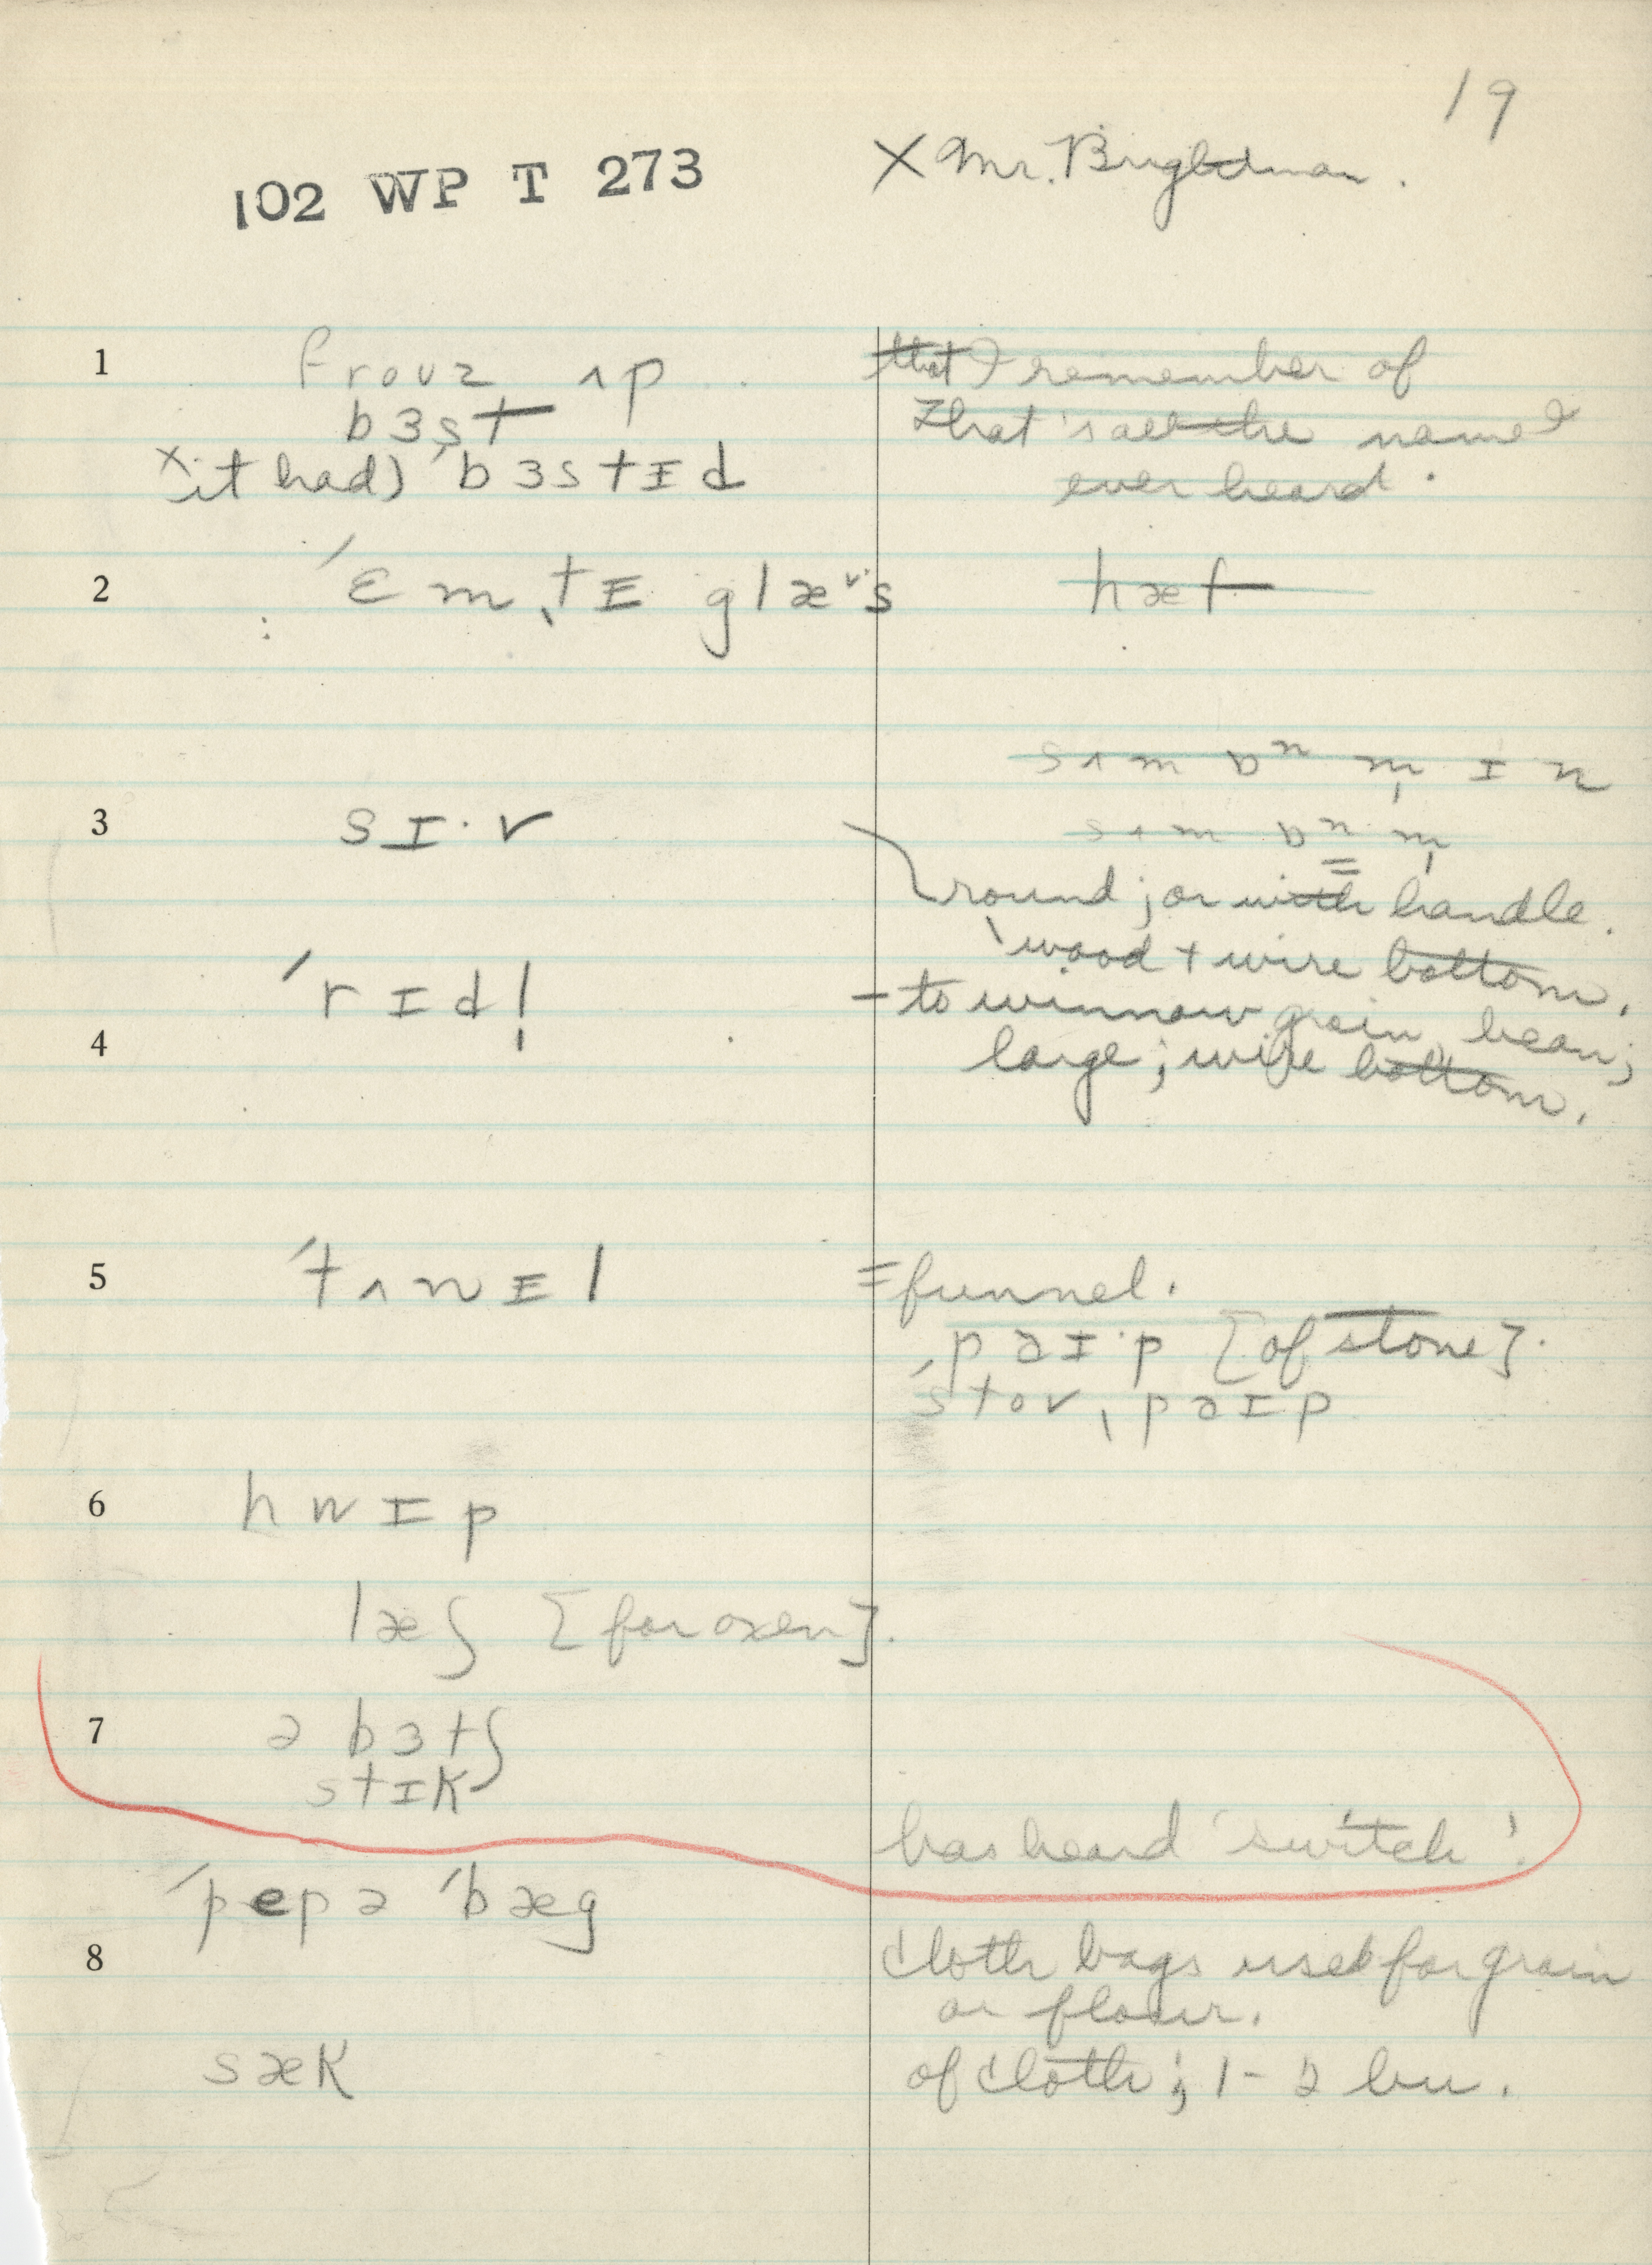 19
102 WP T 273
X Mr. Brightman.
1
frouz ʌp
bɜst
x it had) ˈbɜstɪd
that I remember of
That's all the name I
ever heard.
2
ˈɛmˌtɪ glæˇˑs
hæf
sʌm
3
sɪˑv
sʌm
round; or with handle.
wood + wire bottom.
ˈrɪdl̩
– to winnow grain, bean;
4
large; wire bottom.
5
ˈtʌnɪl
= funnel.
pəɪˑp [of stone].
ˈstovˌpəɪp
6
hwɪp
læʃ [for oxen].
7
ə bɜtʃ
stɪk
has heard 'switch'.
ˈpepə ˈbæg
8
cloth bags used for grain
or flour.
sæk
of cloth; 1-2 bu.